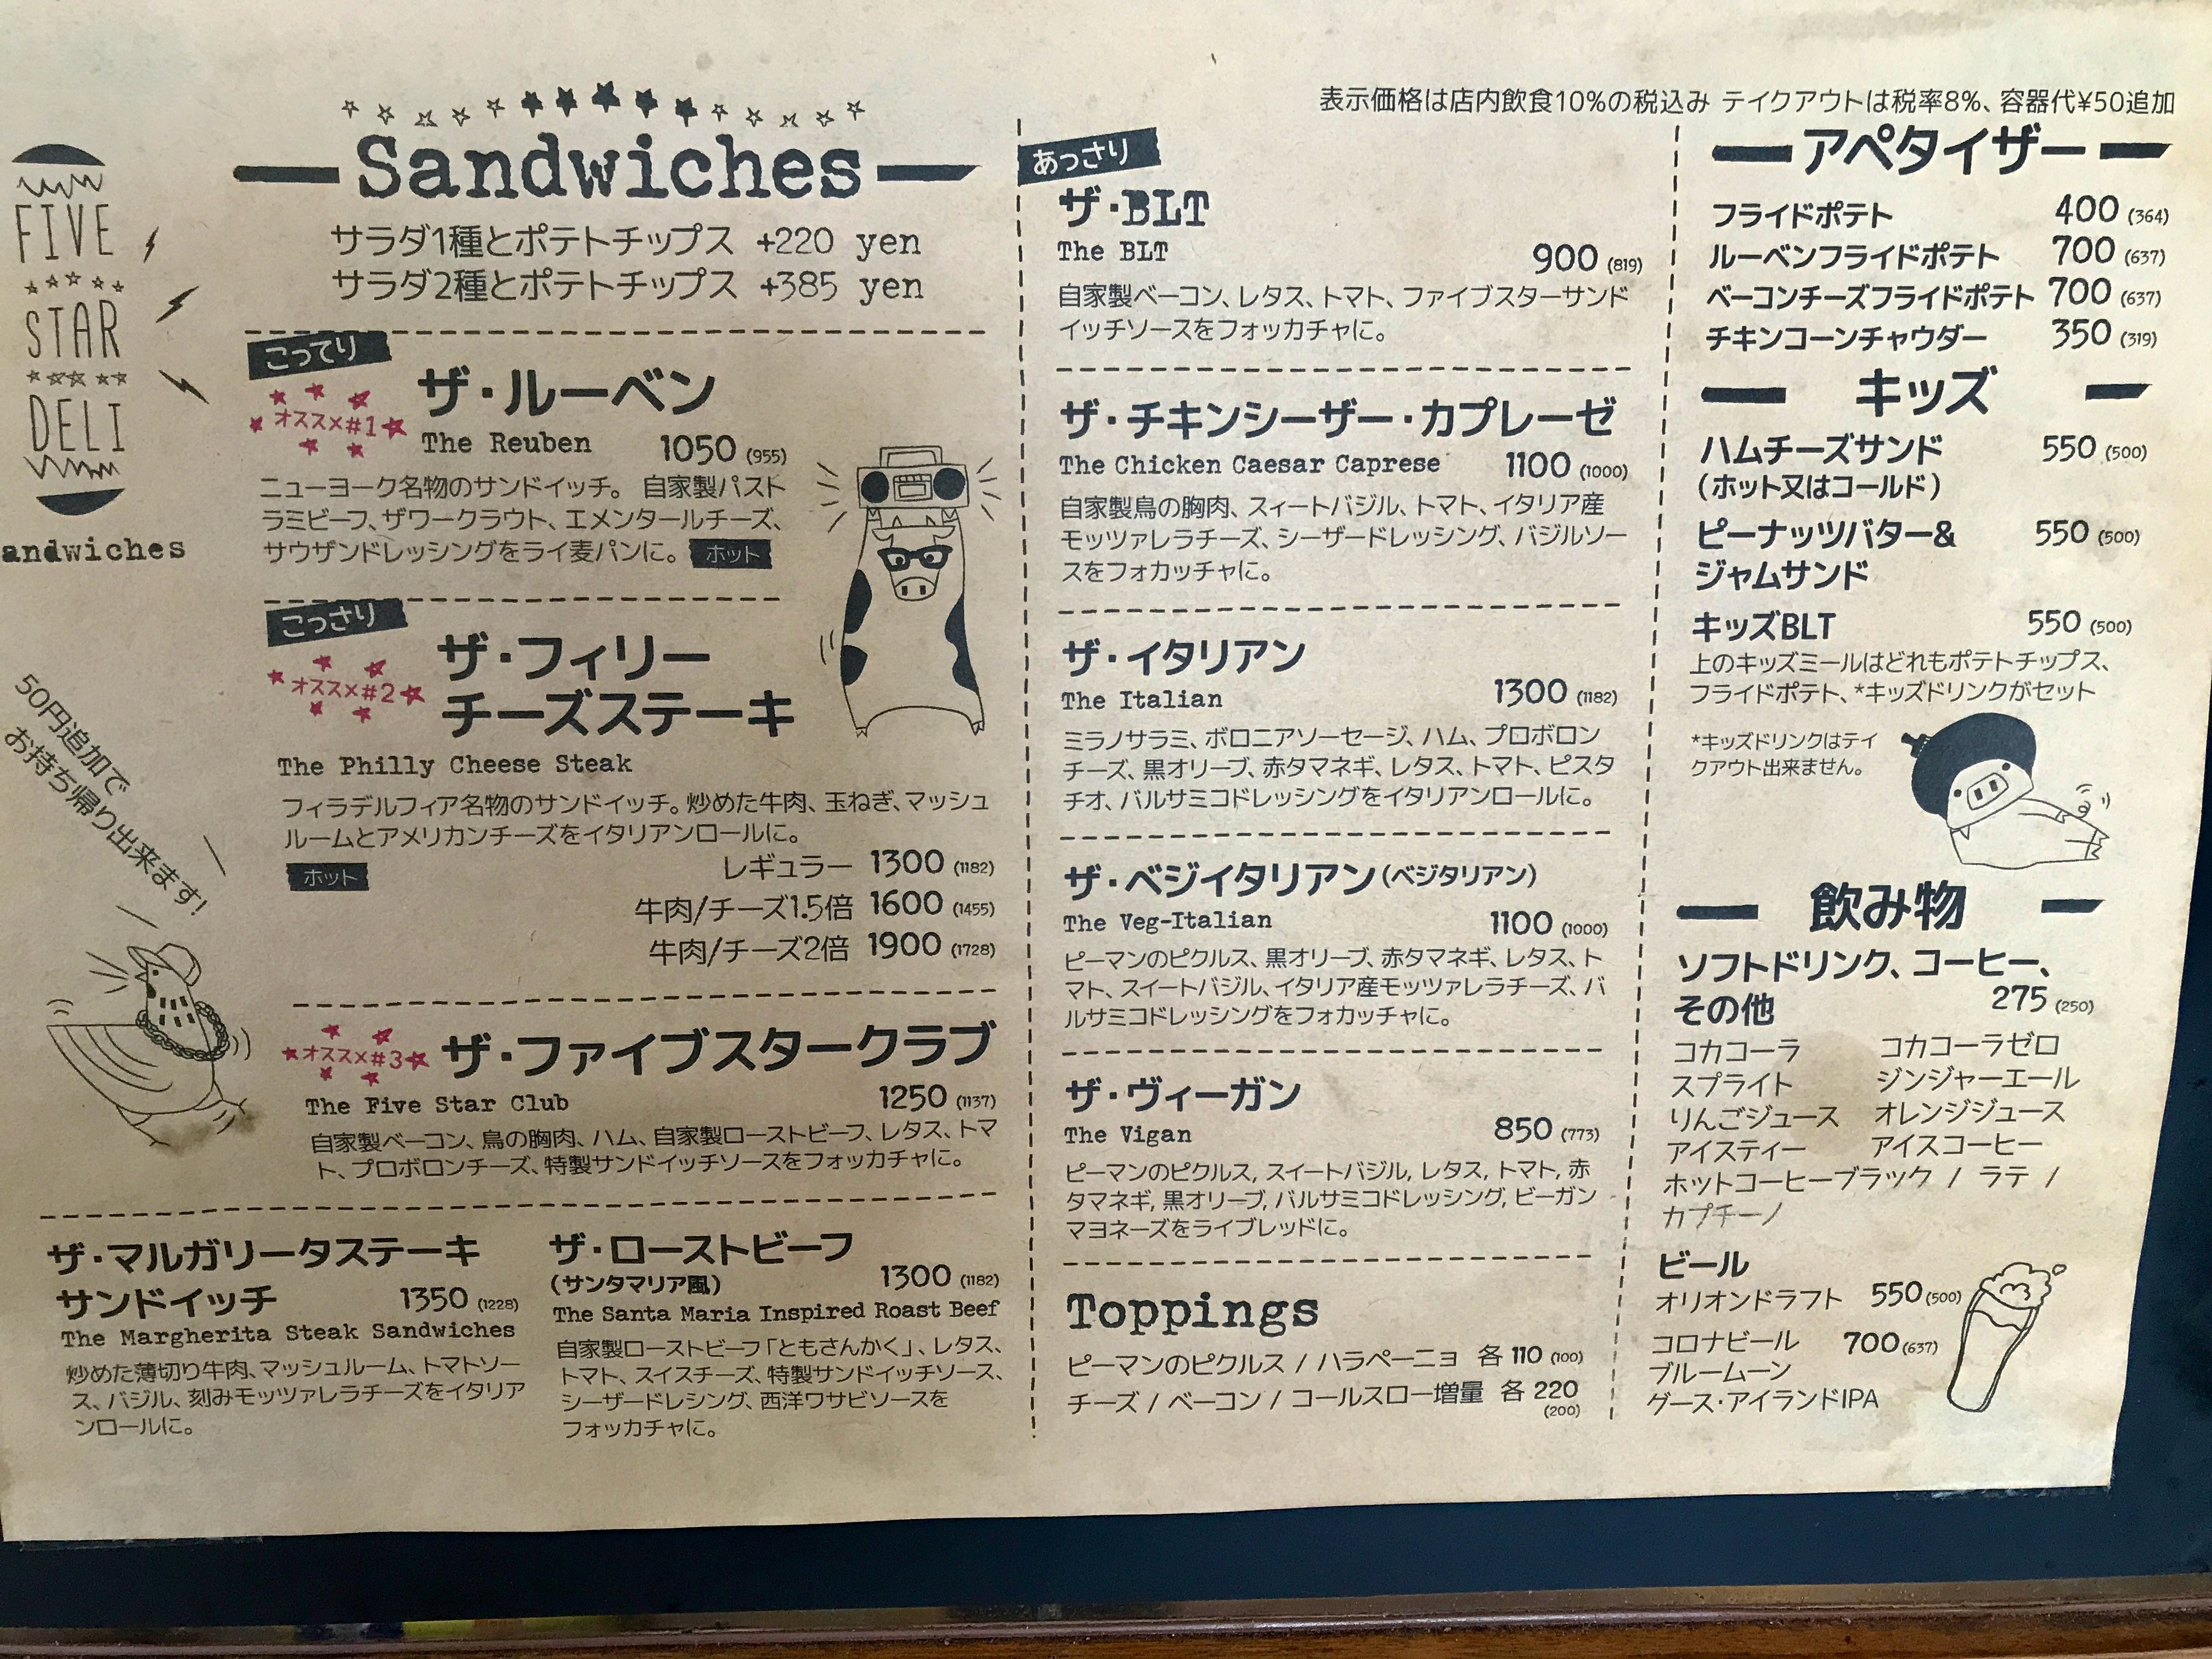 表示価格は店内飲食10%の税込み テイクアウトは税率8%、容器代¥50追加
FIVE
STAR
DELI
andwiches
50円追加で
お持ち帰り出来ます!
Sandwiches
サラダ1種とポテトチップス +220 yen
サラダ2種とポテトチップス +385 yen
こってり
オススメ#1
ザ・ルーベン
The Reuben 1050 (955)
ニューヨーク名物のサンドイッチ。 自家製パスト
ラミビーフ、ザワークラウト、エメンタールチーズ、
サウザンドレッシングをライ麦パンに。 ホット
こっさり
オススメ#2
ザ・フィリー
チーズステーキ
The Philly Cheese Steak
フィラデルフィア名物のサンドイッチ。炒めた牛肉、玉ねぎ、マッシュ
ルームとアメリカンチーズをイタリアンロールに。
ホット
レギュラー 1300 (1182)
牛肉/チーズ1.5倍 1600 (1455)
牛肉/チーズ2倍 1900 (1728)
オススメ#3
ザ・ファイブスタークラブ
The Five Star Club 1250 (1137)
自家製ベーコン、鳥の胸肉、ハム、自家製ローストビーフ、レタス、トマ
ト、プロボロンチーズ、特製サンドイッチソースをフォッカチャに。
ザ・マルガリータステーキ
サンドイッチ 1350 (1228)
The Margherita Steak Sandwiches
炒めた薄切り牛肉、マッシュルーム、トマトソー
ス、バジル、刻みモッツァレラチーズをイタリア
ンロールに。
ザ・ローストビーフ
(サンタマリア風) 1300 (1182)
The Santa Maria Inspired Roast Beef
自家製ローストビーフ「ともさんかく」、レタス、
トマト、スイスチーズ、特製サンドイッチソース、
シーザードレシング、西洋ワサビソースを
フォッカチャに。
あっさり
ザ・BLT
The BLT 900 (819)
自家製ベーコン、レタス、トマト、ファイブスターサンド
イッチソースをフォッカチャに。
ザ・チキンシーザー・カプレーゼ
The Chicken Caesar Caprese 1100 (1000)
自家製鳥の胸肉、スィートバジル、トマト、イタリア産
モッツァレラチーズ、シーザードレッシング、バジルソー
スをフォカッチャに。
ザ・イタリアン
The Italian 1300 (1182)
ミラノサラミ、ボロニアソーセージ、ハム、プロボロン
チーズ、黒オリーブ、赤タマネギ、レタス、トマト、ピスタ
チオ、バルサミコドレッシングをイタリアンロールに。
ザ・ベジイタリアン(ベジタリアン)
The Veg-Italian 1100 (1000)
ピーマンのピクルス、黒オリーブ、赤タマネギ、レタス、ト
マト、スイートバジル、イタリア産モッツァレラチーズ、バ
ルサミコドレッシングをフォカッチャに。
ザ・ヴィーガン
The Vigan 850 (773)
ピーマンのピクルス, スイートバジル, レタス, トマト, 赤
タマネギ, 黒オリーブ, バルサミコドレッシング, ビーガン
マヨネーズをライブレッドに。
Toppings
ピーマンのピクルス / ハラペーニョ 各 110 (100)
チーズ / ベーコン / コールスロー増量 各 220
(200)
アペタイザー
フライドポテト 400 (364)
ルーベンフライドポテト 700 (637)
ベーコンチーズフライドポテト 700 (637)
チキンコーンチャウダー 350 (319)
キッズ
ハムチーズサンド 550 (500)
(ホット又はコールド)
ピーナッツバター& 550 (500)
ジャムサンド
キッズBLT 550 (500)
上のキッズミールはどれもポテトチップス、
フライドポテト、*キッズドリンクがセット
*キッズドリンクはテイ
クアウト出来ません。
飲み物
ソフトドリンク、コーヒー、
その他 275 (250)
コカコーラ コカコーラゼロ
スプライト ジンジャーエール
りんごジュース オレンジジュース
アイスティー アイスコーヒー
ホットコーヒーブラック / ラテ /
カプチーノ
ビール
オリオンドラフト 550 (500)
コロナビール 700 (637)
ブルームーン
グース・アイランドIPA